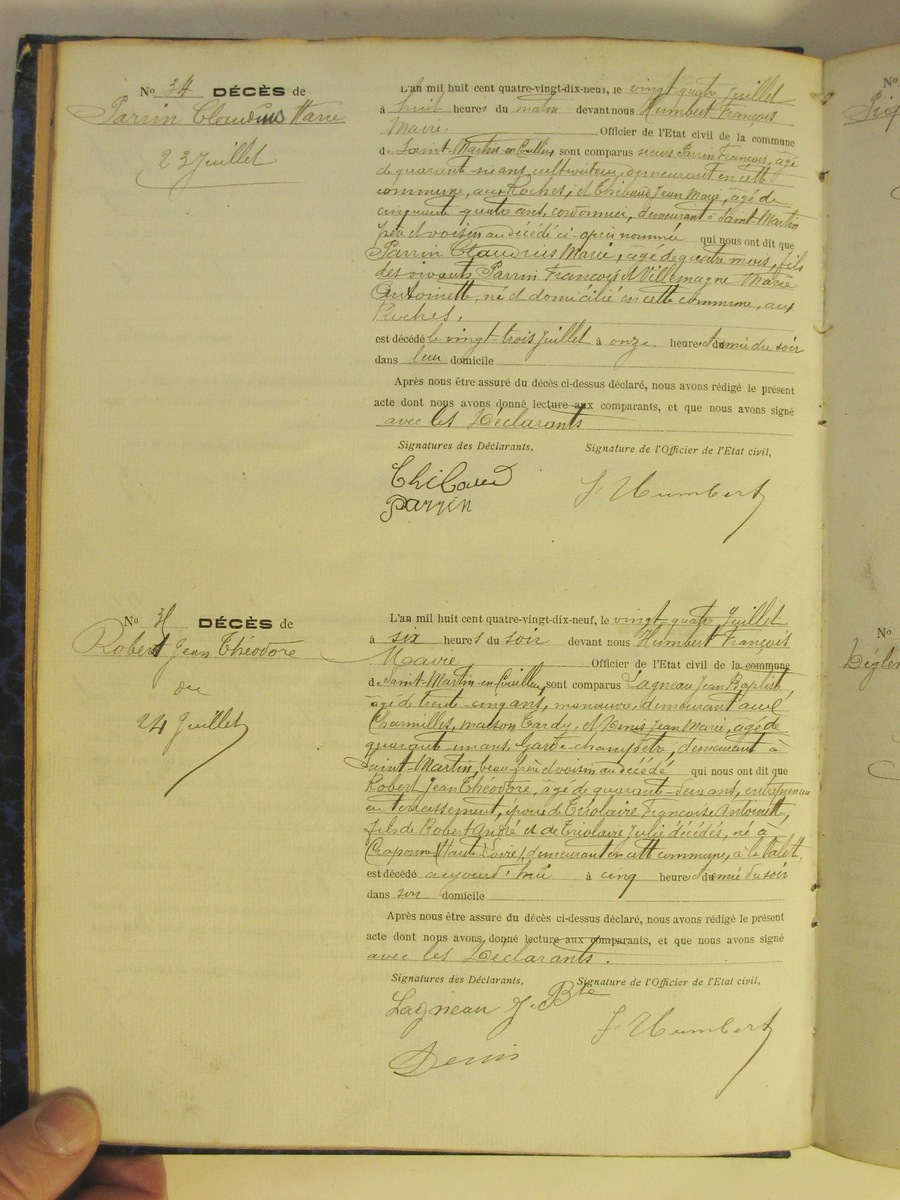 No 34 DÉCÈS de
Parrin Claudius Marie
23 Juillet
L'an mil huit cent quatre-vingt-dix-neuf, le vingt-quatre Juillet
à huit heures du matin devant nous Humbert François
Maire Officier de l'Etat civil de la commune
de Saint-Martin-en-Coailleux, sont comparus sieurs Parrin François, âgé
de quarante-six ans, cultivateur, demeurant en cette
commune, aux Roches, et Thibaud Jean Marie, âgé de
cinquante quatre ans, cordonnier, demeurant à Saint-Martin
père et voisin au décédé ci-après nommé qui nous ont dit que
Parrin Claudius Marie, âgé de quatre mois, fils
des vivants Parrin François et Villemagne Marie
Antoinette, né et domicilié en cette commune, aux
Roches,
est décédé le vingt-trois Juillet à onze heures du soir
dans leur domicile
Après nous être assuré du décès ci-dessus déclaré, nous avons rédigé le présent
acte dont nous avons donné lecture aux comparants, et que nous avons signé
avec les Déclarants
Signatures des Déclarants, Signature de l'Officier de l'Etat civil,
Thibaud
Parrin
F Humbert
No 35 DÉCÈS de
Robert Jean Théodore
du
24 Juillet
L'an mil huit cent quatre-vingt-dix-neuf, le vingt-quatre Juillet
à six heures du soir devant nous Humbert François
Maire Officier de l'Etat civil de la commune
de Saint-Martin-en-Coailleux, sont comparus Lagneau Jean Baptiste,
âgé de trente-cinq ans, manœuvre, demeurant aux
Charmilles, maison Tardy, et Denis Jean Marie, âgé de
quarante un ans, Garde-champêtre, demeurant à
Saint-Martin, beau-frère et voisin au décédé qui nous ont dit que
Robert Jean Théodore, âgé de quarante-deux ans, entrepreneur
en terrassement, époux de Françoise Antoinette,
fils de Robert André et de Julie décédés, né à
Craponne (Haute-Loire) demeurant en cette commune, à la Valette,
est décédé aujourd'hui à cinq heures du soir
dans son domicile
Après nous être assuré du décès ci-dessus déclaré, nous avons rédigé le présent
acte dont nous avons donné lecture aux comparants, et que nous avons signé
avec les Déclarants.
Signatures des Déclarants, Signature de l'Officier de l'Etat civil,
Lagneau J. Bte
Denis
F Humbert
No
No